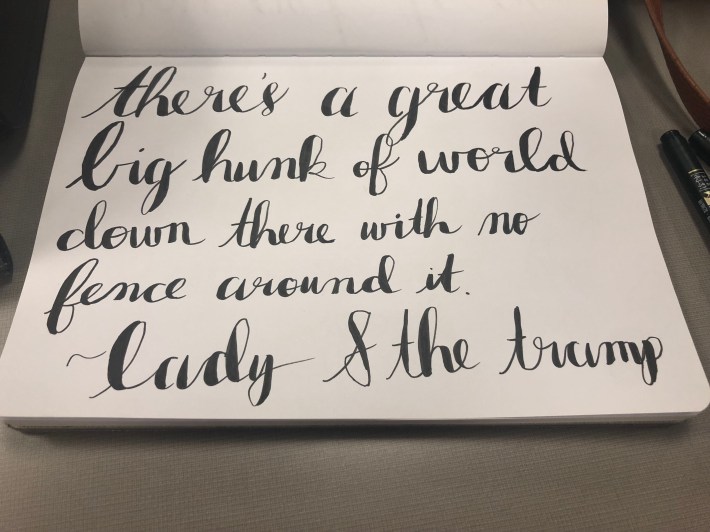 there's a great
big hunk of world
down there with no
fence around it.
~lady & the tramp